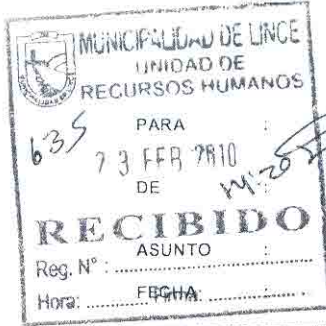 MUNICIPALIDAD DE LINCE
UNIDAD DE
RECURSOS HUMANOS
635
PARA :
23 FEB 2010
DE :
RECIBIDO
ASUNTO :
Reg. N° : ....................
Hora: .......... FECHA: ..........